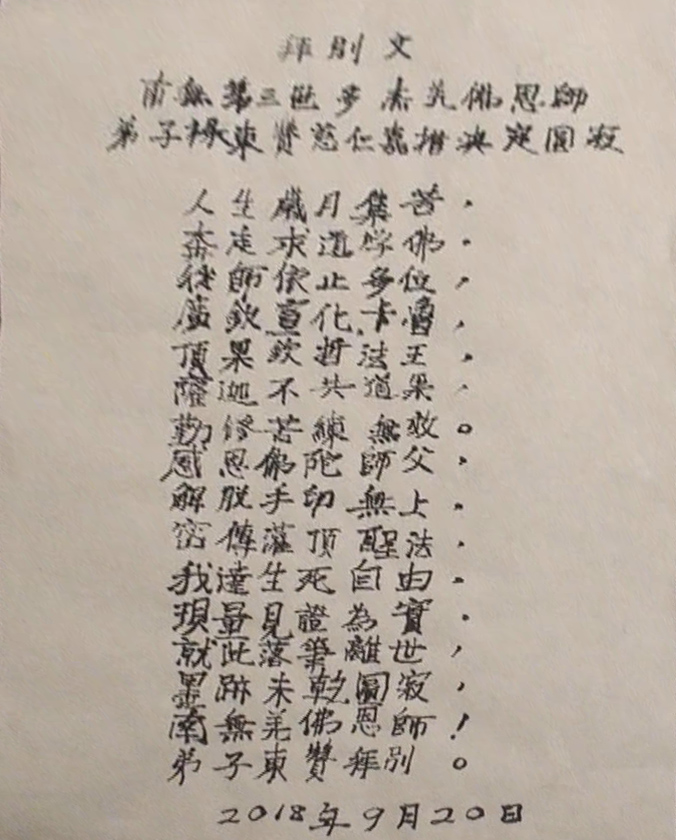 拜別文
南無第三世多杰羌佛恩師
弟子楊東贊慈仁嘉措決定圓寂
人生歲月集苦,
奔走求道學佛,
從師依止多位,
廣欽宣化卡魯,
頂果欽哲法王,
薩迦不共道果,
勤修苦練無收。
感恩佛陀師父,
解脫手印無上,
密傳灌頂醒法,
我達生死自由,
現量見證為實,
就此落筆離世,
墨跡未乾圓寂,
南無羌佛恩師!
弟子東贊拜別。
2018年9月20日